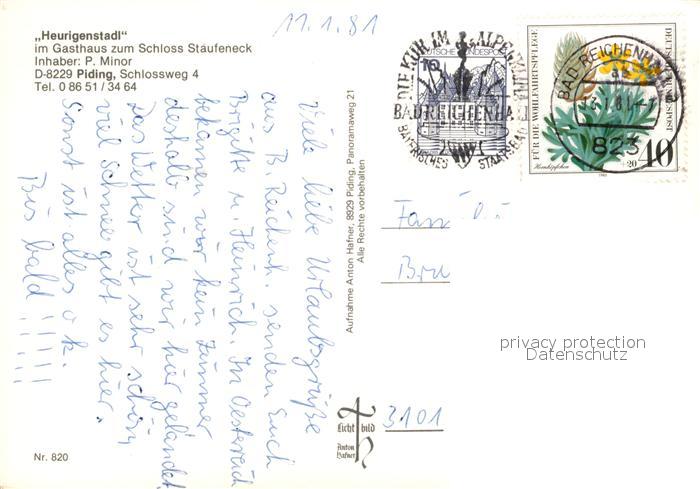 11.1.81
„Heurigenstadl“
im Gasthaus zum Schloss Staufeneck
Inhaber: P. Minor
D-8229 Piding, Schlossweg 4
Tel. 0 86 51 / 34 64
Viele liebe Urlaubsgrüße
aus B. Reichenh. senden Euch
Brigitte u. Heinrich. In Oestereich
bekamen wir kein Zimmer
deshalb sind wir hier gelandet.
Das Wetter ist sehr schön,
viel Schnee gibt es hier.
Sonst ist alles o.k.
Bis bald!!!!!!
Nr. 820
Aufnahme Anton Hafner, 8929 Piding, Panoramaweg 21
Alle Rechte vorbehalten
Licht bild
Anton
Hafner
DIE KUR IM ALPENKLIMA
BAD REICHENHALL
BAYERISCHES STAATSBAD
DEUTSCHE BUNDESPOST
10
FÜR DIE WOHLFAHRTSPFLEGE
DEUTSCHE BUNDESPOST
BAD REICHENHALL
823
40
+20
Hornköpfchen
Fam
3101
privacy protection
Datenschutz